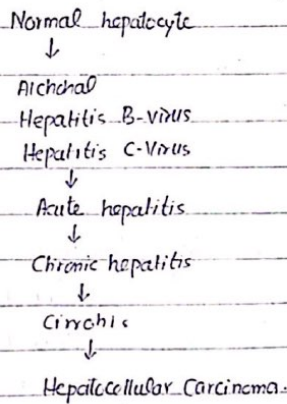 Normal hepatocyte
↓
Alchohal
Hepatitis B-virus
Hepatitis C-Virus
↓
Acute hepatitis
↓
Chronic hepatitis
↓
Cirrohis
↓
Hepatocellular Carcinoma.